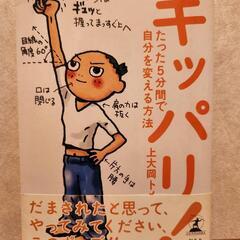 キッパリ!
たった5分間で
自分を変える方法
上大岡トメ
ギュッと
握ってまっすぐ上へ
目線の
角度60°
口は
閉じる
肩の力は
抜く
片方の手は
腰
だまされたと思って、
やってみてください、